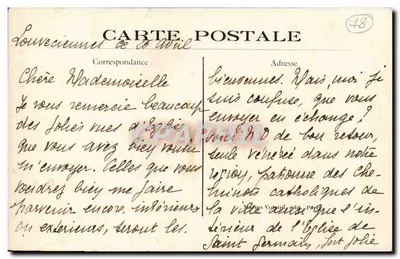 78
Louveciennes le 20 Avril
CARTE POSTALE
Correspondance
Adresse
Chère Mademoiselle
Je vous remercie beaucoup
des jolies vues d'Eglises
que vous avez bien voulu
m'envoyer. Celles que vous
voudrez bien me faire
parvenir encore, intérieurs
ou extérieurs, seront les
bienvenues. Mais, moi je
suis confuse, que vous
envoyer en échange?
voici N.D de bon retour,
seule vénérée dans notre
région, patronne des che-
minots catholiques de
la ville ainsi que l'in-
térieur de l'Eglise de
Saint Germain, fort jolie